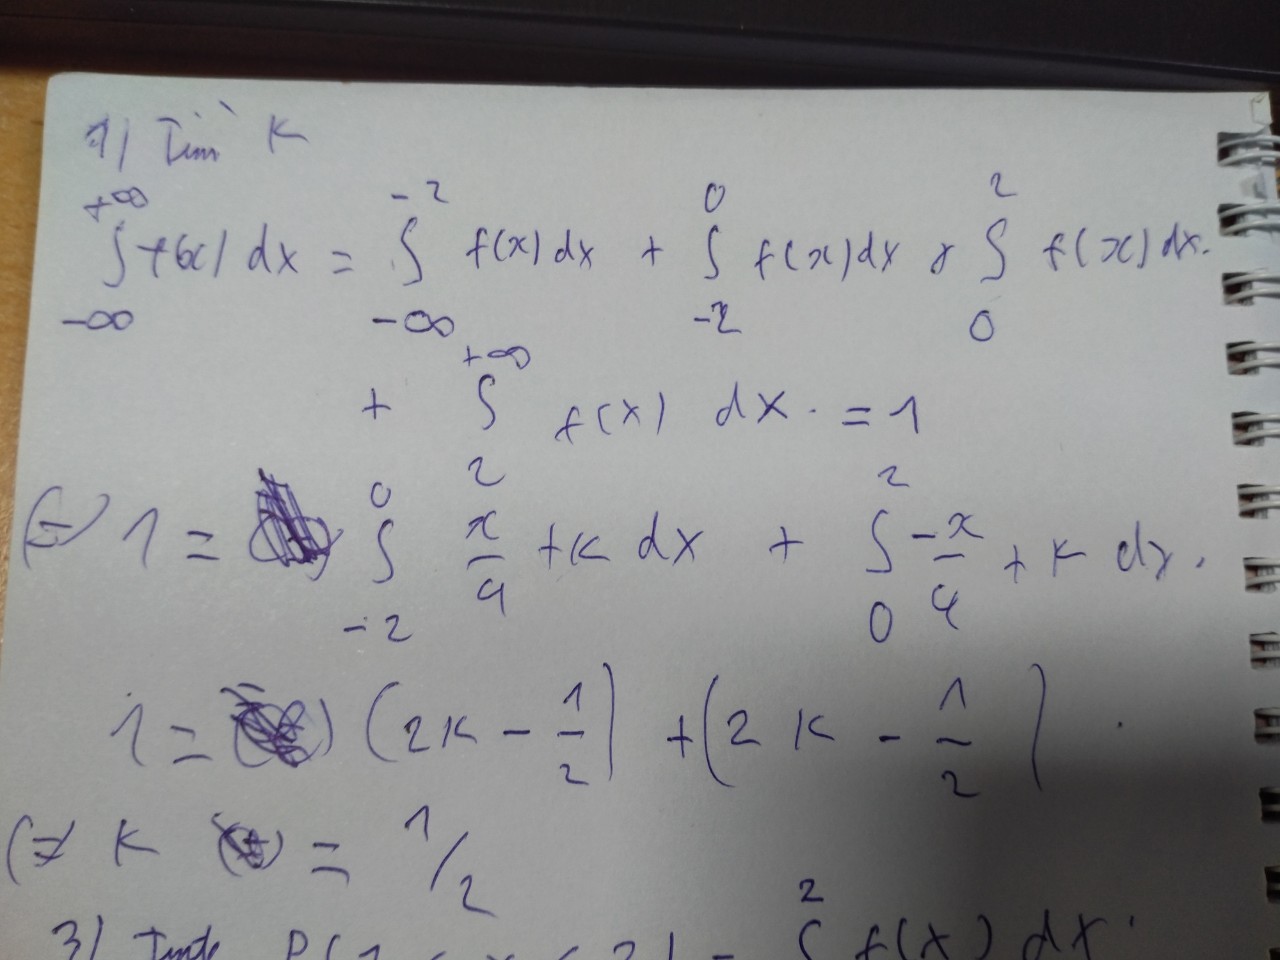 1) Tìm K
∫_{-∞}^{+∞} f(x) dx = ∫_{-∞}^{-2} f(x) dx + ∫_{-2}^{0} f(x) dx + ∫_{0}^{2} f(x) dx.
+ ∫_{2}^{+∞} f(x) dx. = 1
(=) 1 = ∫_{-2}^{0} x/4 + K dx + ∫_{0}^{2} -x/4 + K dx.
1 = (2K - 1/2) + (2K - 1/2).
(=) K = 1/2
3) P(1 < x < 2) = ∫^{2} f(x) dx.